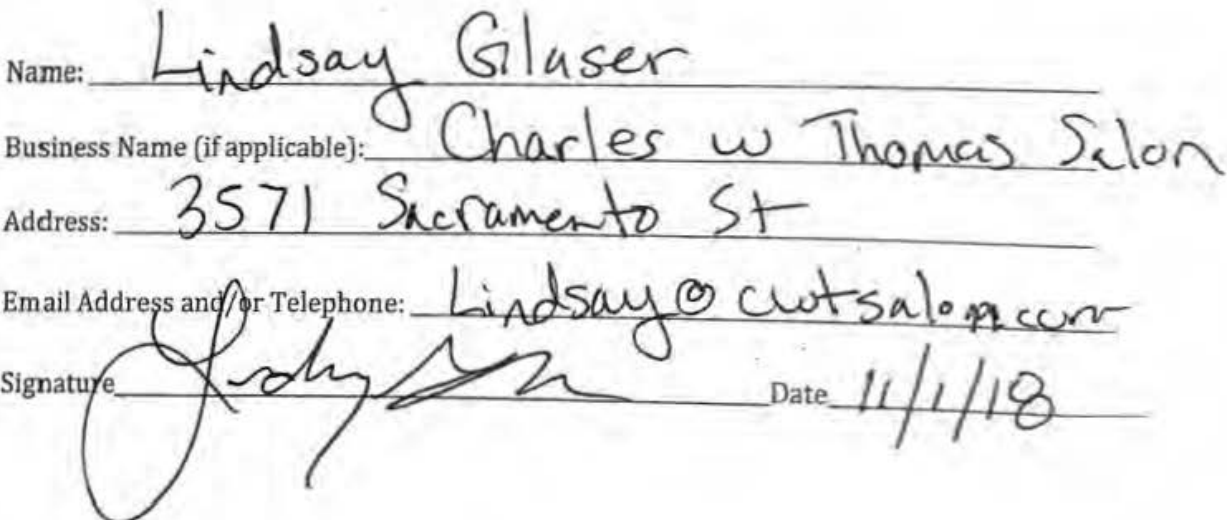 Name: Lindsay Glaser
Business Name (if applicable): Charles w Thomas Salon
Address: 3571 Sacramento St
Email Address and/or Telephone: Lindsay@cwtsalon.com
Signature Date 11/1/18